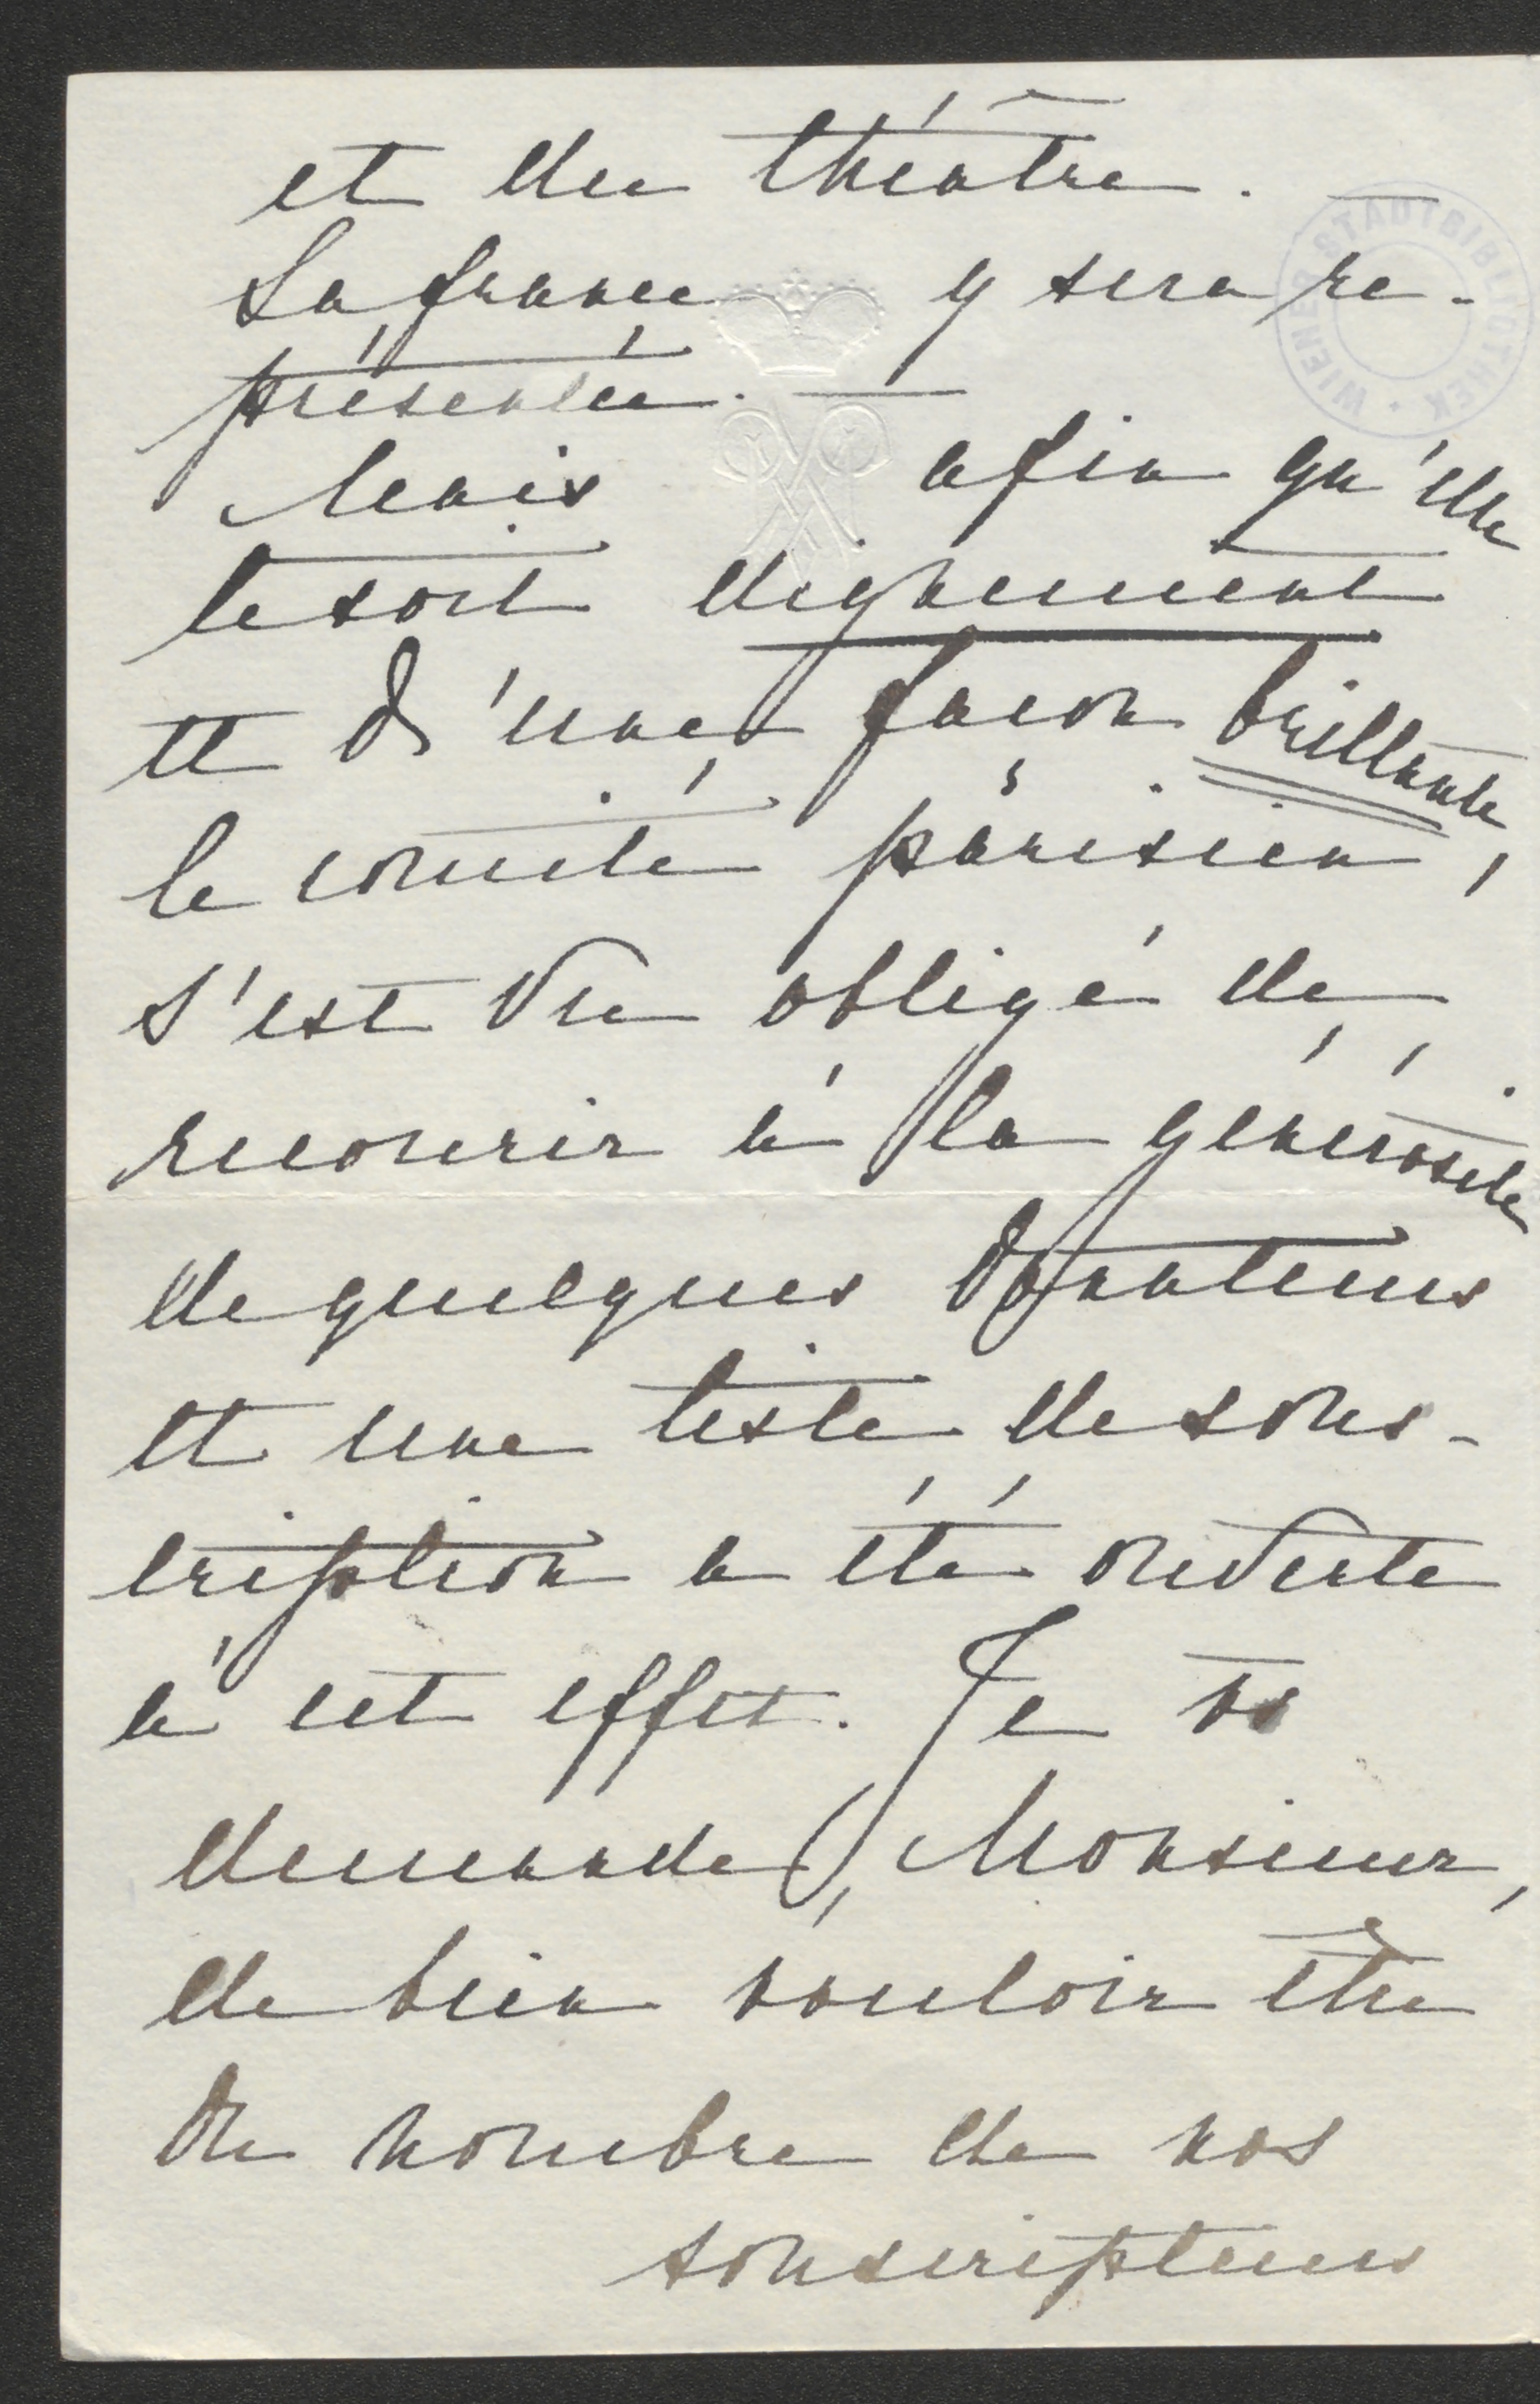 et du théâtre. —
La france y sera re-
présentée. —
Mais afin qu'elle
le soit dignement
et d'une façon brillante,
le comité parisien,
s'est vu obligé de
recourir à la générosité
de quelques donateurs
et une liste de sous-
cription a été ouverte
à cet effet. Je vs
demande, Monsieur,
de bien vouloir être
du nombre de nos
souscripteurs
WIENER STADTBIBLIOTHEK